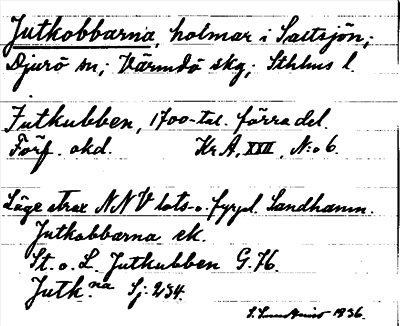 Jutkobbarna, holmar i Saltsjön;
Djurö sn; Värmdö skg; Sthlms l.
Jutkubben, 1700-tal. förra del.
Förf. okd. Kr.A, XXII, N:o 6.
Läge strax NNV lots- o. fyrpl. Sandhamn.
Jutkobbarna ek.
St. o. L. Jutkubben G.76.
Jutk.na Sj. 234.
1936.